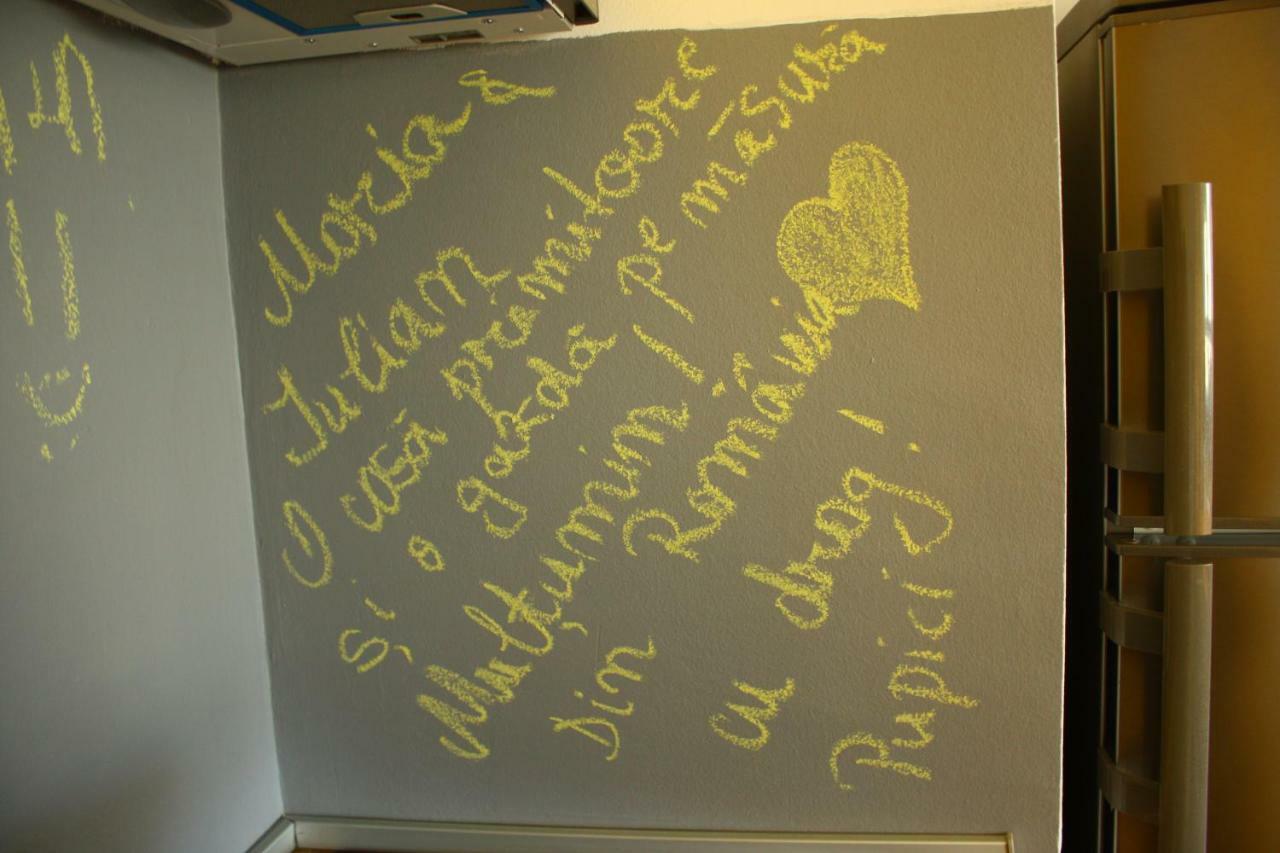 Maria &
Iulian
O casă primitoare
și o gazdă pe măsură
Mulțumim!
Din România
cu drag!
Pupici